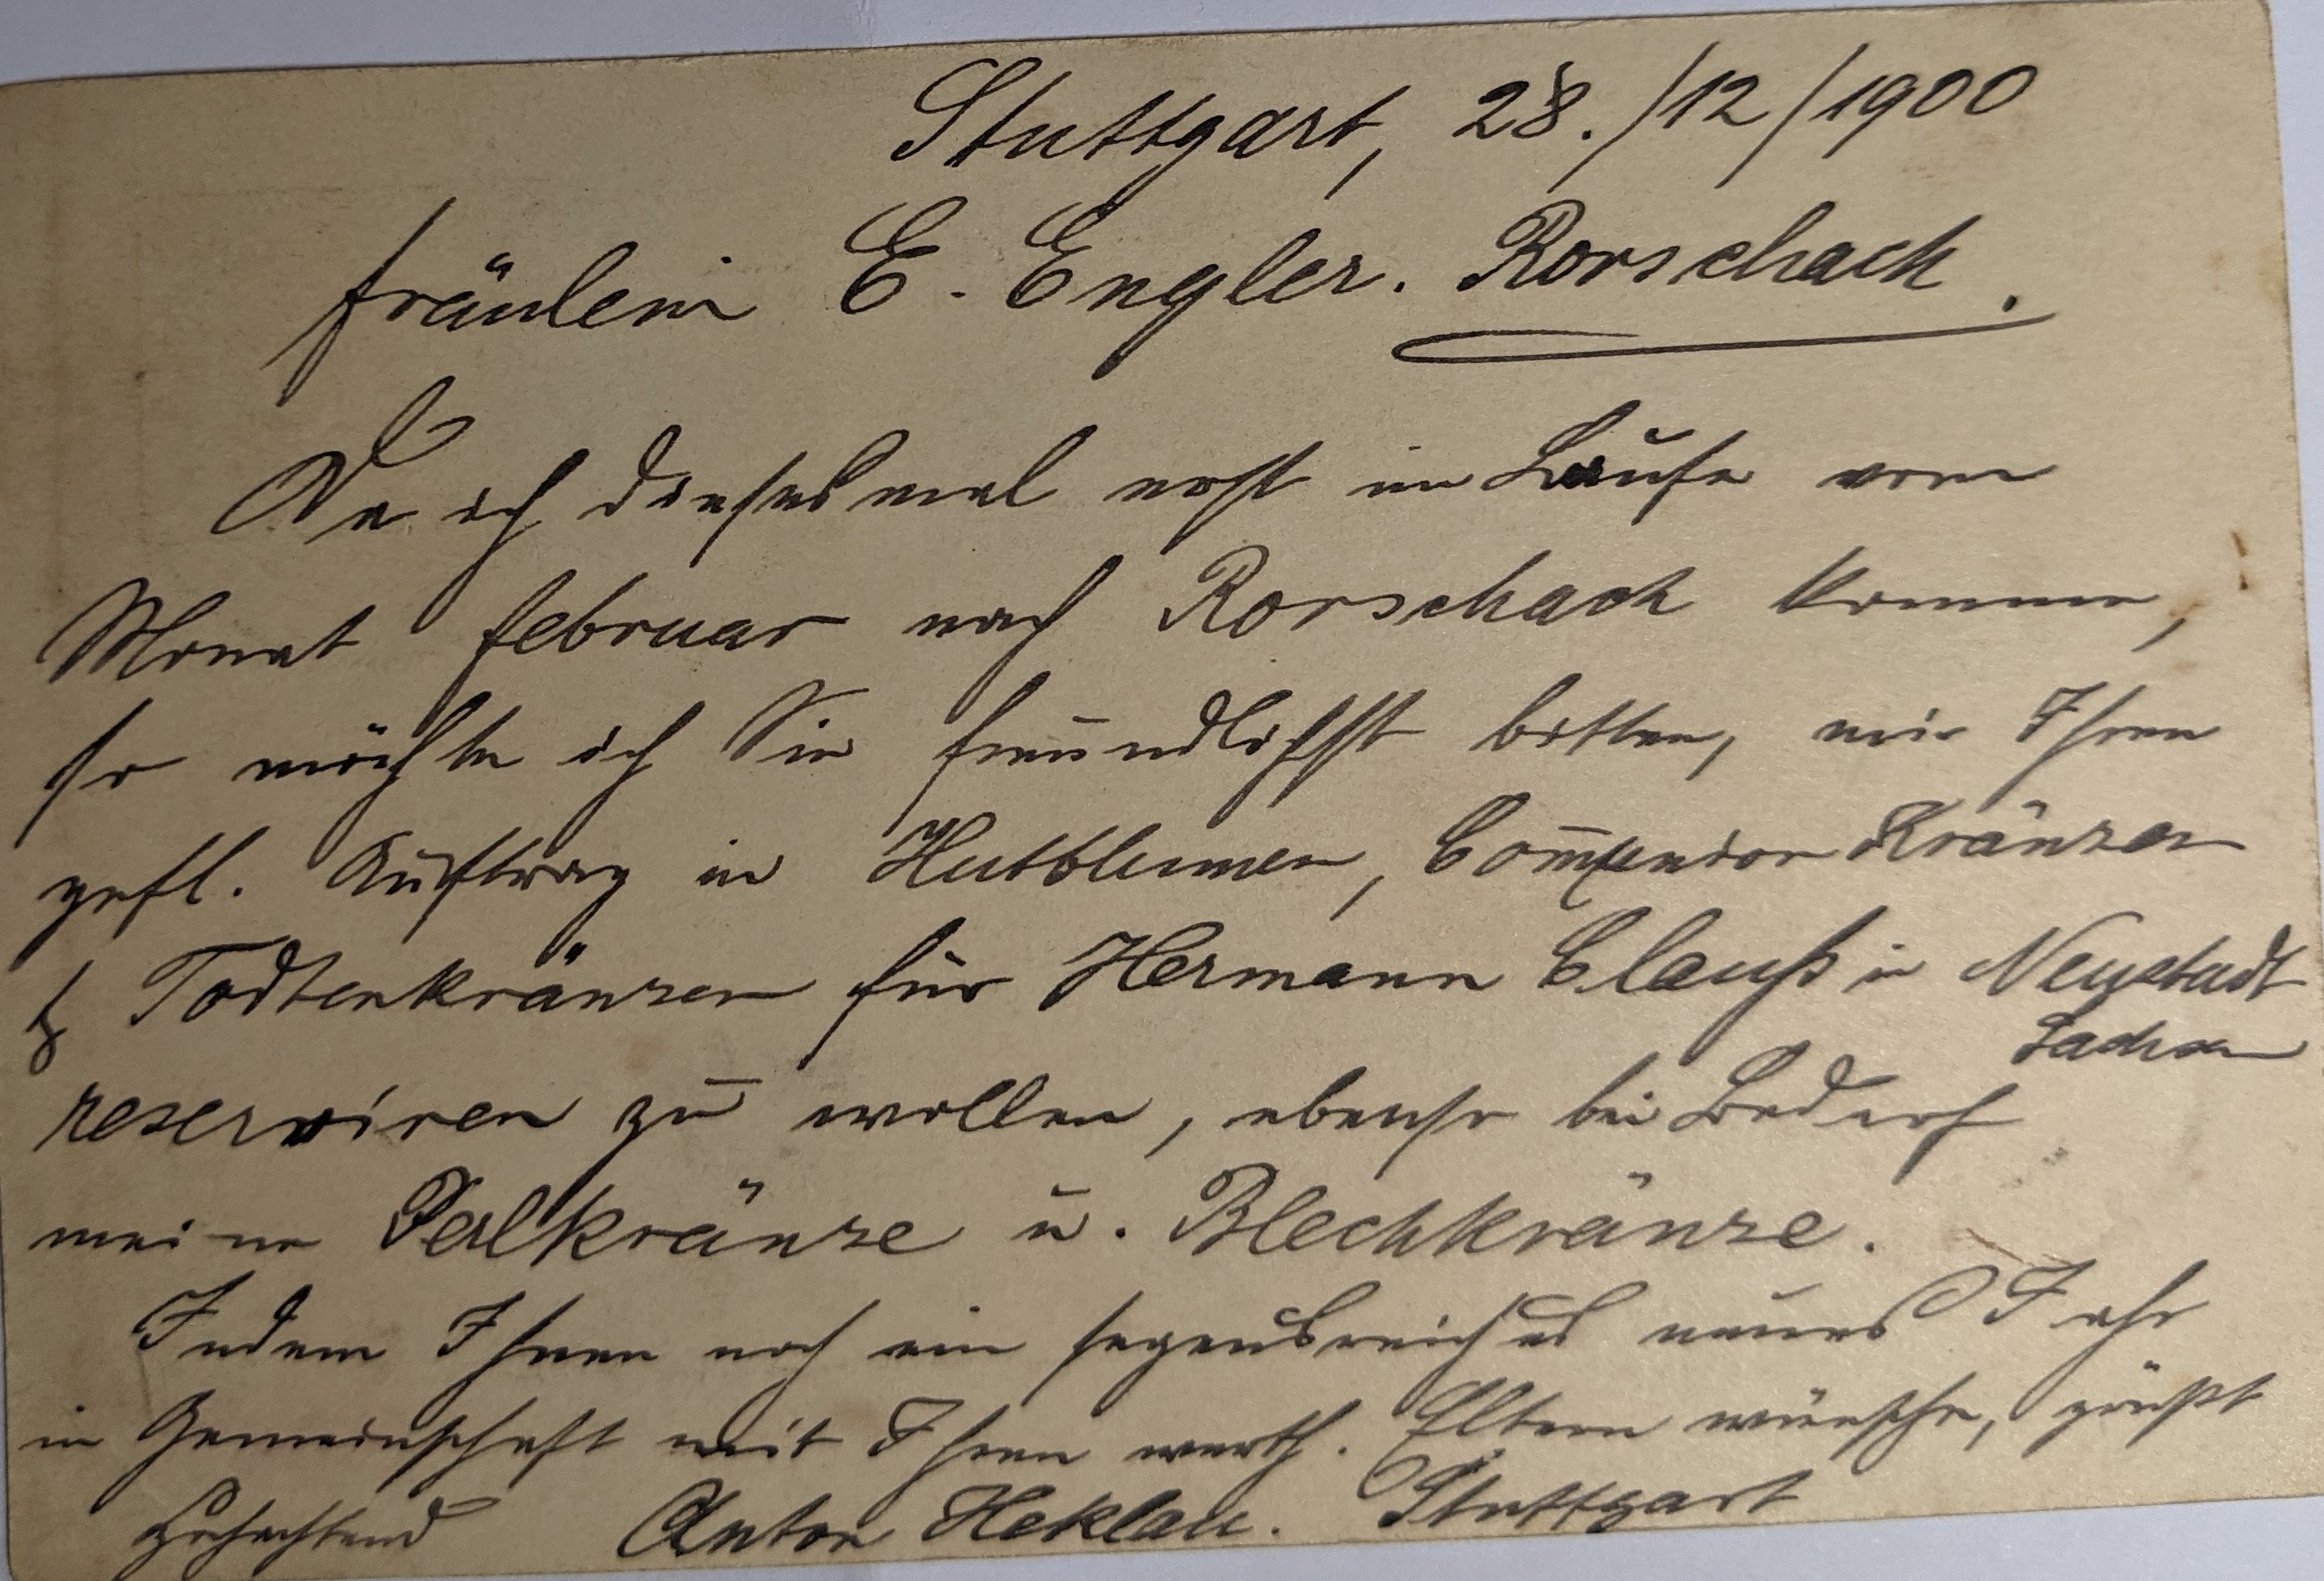 Stuttgart, 28./12/1900
Fräulein E. Engler. Rorschach.
Da ich diesesmal erst im Laufe vom
Monat Februar nach Rorschach komme,
so möchte ich Sie freundlichst bitten, mir Ihren
gefl. Auftrag in Hutblumen, Kränzen
& Todtenkränzen für Hermann Clauß in Neustadt
Sachsen
reserviren zu wollen, ebenso bei Bedarf
meine Perlkränze u. Blechkränze.
Indem Ihnen noch ein segensreiches neues Jahr
in Gemeinschaft mit Ihren werth. Eltern wünsche, grüßt
Hochachtend Anton Heklau. Stuttgart